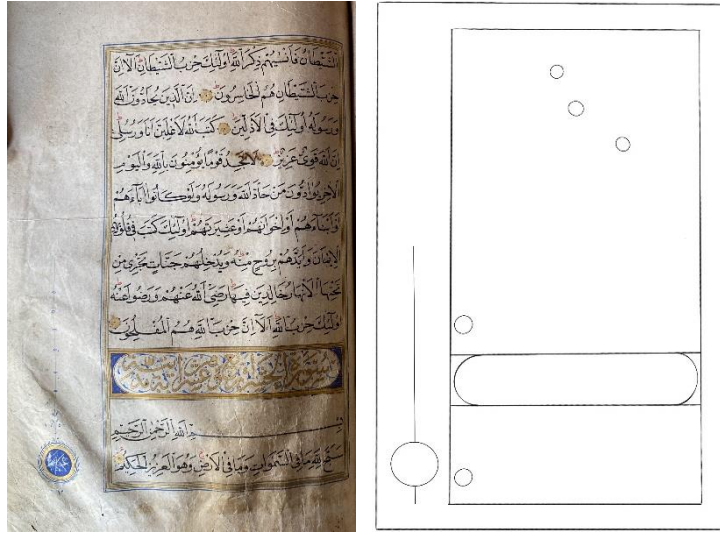 الشَّيْطَانُ فَأَنْسَيهُمْ ذِكْرَ اللَّهِ أُولَئِكَ حِزْبُ الشَّيْطَانِ أَلَا إِنَّ
حِزْبَ الشَّيْطَانِ هُمُ الْخَاسِرُونَ إِنَّ الَّذِينَ يُحَادُّونَ اللَّهَ
وَرَسُولَهُ أُولَئِكَ فِي الْأَذَلِّينَ كَتَبَ اللَّهُ لَأَغْلِبَنَّ أَنَا وَرُسُلِي
إِنَّ اللَّهَ قَوِيٌّ عَزِيزٌ لَا تَجِدُ قَوْمًا يُؤْمِنُونَ بِاللَّهِ وَالْيَوْمِ
الْآخِرِ يُوَادُّونَ مَنْ حَادَّ اللَّهَ وَرَسُولَهُ وَلَوْ كَانُوا آبَاءَهُمْ
أَوْ أَبْنَاءَهُمْ أَوْ إِخْوَانَهُمْ أَوْ عَشِيرَتَهُمْ أُولَئِكَ كَتَبَ فِي قُلُوبِهِمُ
الْإِيمَانَ وَأَيَّدَهُمْ بِرُوحٍ مِنْهُ وَيُدْخِلُهُمْ جَنَّاتٍ تَجْرِي مِنْ
تَحْتِهَا الْأَنْهَارُ خَالِدِينَ فِيهَا رَضِيَ اللَّهُ عَنْهُمْ وَرَضُوا عَنْهُ
أُولَئِكَ حِزْبُ اللَّهِ أَلَا إِنَّ حِزْبَ اللَّهِ هُمُ الْمُفْلِحُونَ
سورة الحشر
بِسْمِ اللَّهِ الرَّحْمَنِ الرَّحِيمِ
سَبَّحَ لِلَّهِ مَا فِي السَّمَوَاتِ وَمَا فِي الْأَرْضِ وَهُوَ الْعَزِيزُ الْحَكِيمُ